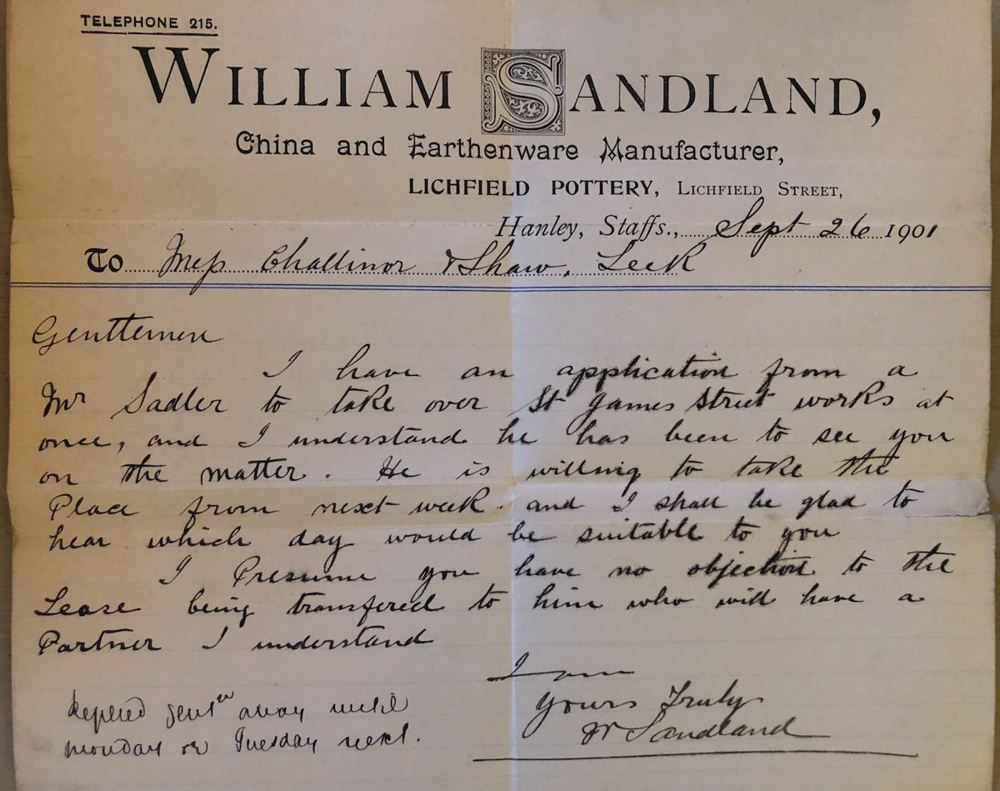 TELEPHONE 215.
WILLIAM SANDLAND,
China and Earthenware Manufacturer,
LICHFIELD POTTERY, LICHFIELD STREET,
Hanley, Staffs., Sept 26 1901
To Mess Challinor & Shaw, Leek
Gentlemen
I have an application from a
Mr Sadler to take over St James Street works at
once, and I understand he has been to see you
on the matter. He is willing to take the
Place from next week. and I shall be glad to
hear which day would be suitable to you
I Presume you have no objection to the
Lease being transfered to him who will have a
Partner I understand
I am
Yours Truly
W Sandland
Replied gent<sup>n</sup> away until
monday or Tuesday next.